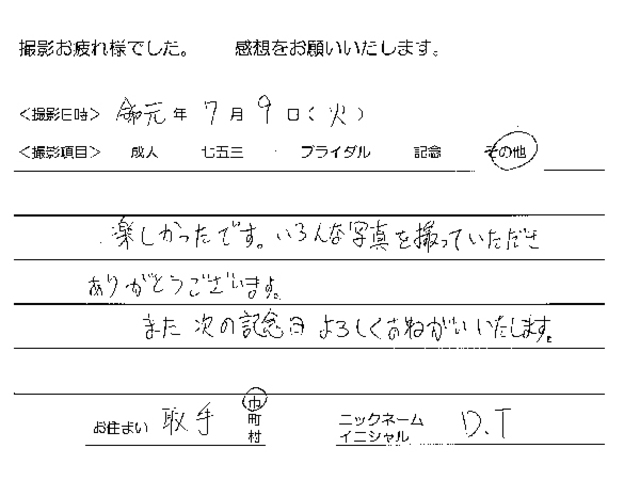 撮影お疲れ様でした。 感想をお願いいたします。
<撮影日時> 令元年 7月 9日(火)
<撮影項目> 成人 七五三 ・ ブライダル 記念 その他
楽しかったです。いろんな写真を撮っていただき
ありがとうございます。
また 次の記念日 よろしくおねがいいたします。
お住まい 取手 市 町 村 ニックネーム イニシャル D.T